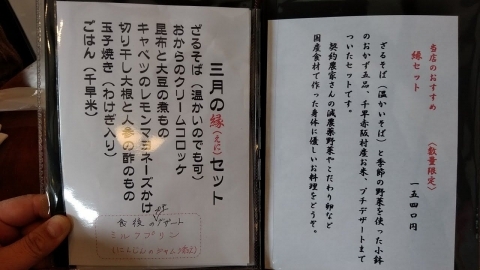 当店のおすすめ
縁セット
(数量限定)
一五四〇円
ざるそば(温かいそば)と季節の野菜を使った小鉢
のおかず五品、千早赤阪村産お米、プチデザートまで
ついたセットです。
契約農家さんの減農薬野菜やこだわり卵など
国産食材で作った身体に優しいお料理をどうぞ。
三月の縁(えにし)セット
ざるそば(温かいのでも可)
おからのクリームコロッケ
昆布と大豆の煮もの
キャベツのレモンマヨネーズかけ
切り干し大根と人参の酢のもの
玉子焼き(わけぎ入り)
ごはん(千早米)
食後のプチデザート
ミルクプリン
(にんじんのジャム添え)